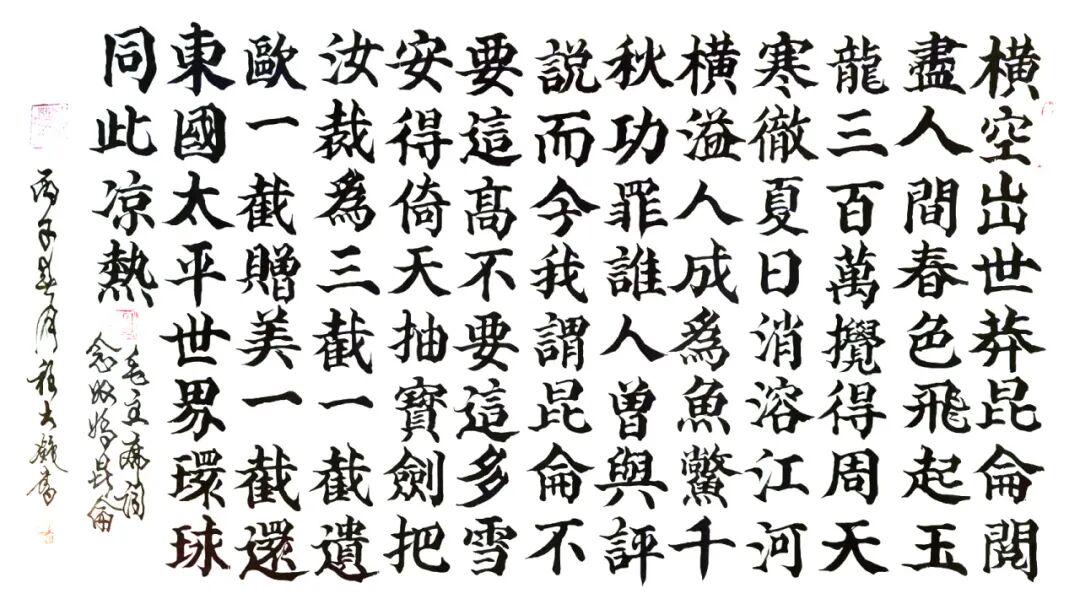 橫空出世莽昆侖閱
盡人間春色飛起玉
龍三百萬攪得周天
寒徹夏日消溶江河
橫溢人成為魚鱉千
秋功罪誰人曾與評
說而今我謂昆侖不
要這高不要這多雪
安得倚天抽寶劍把
汝裁為三截一截遺
歐一截贈美一截還
東國太平世界環球
同此凉熱
毛主席詞
念奴嬌昆侖
月
書